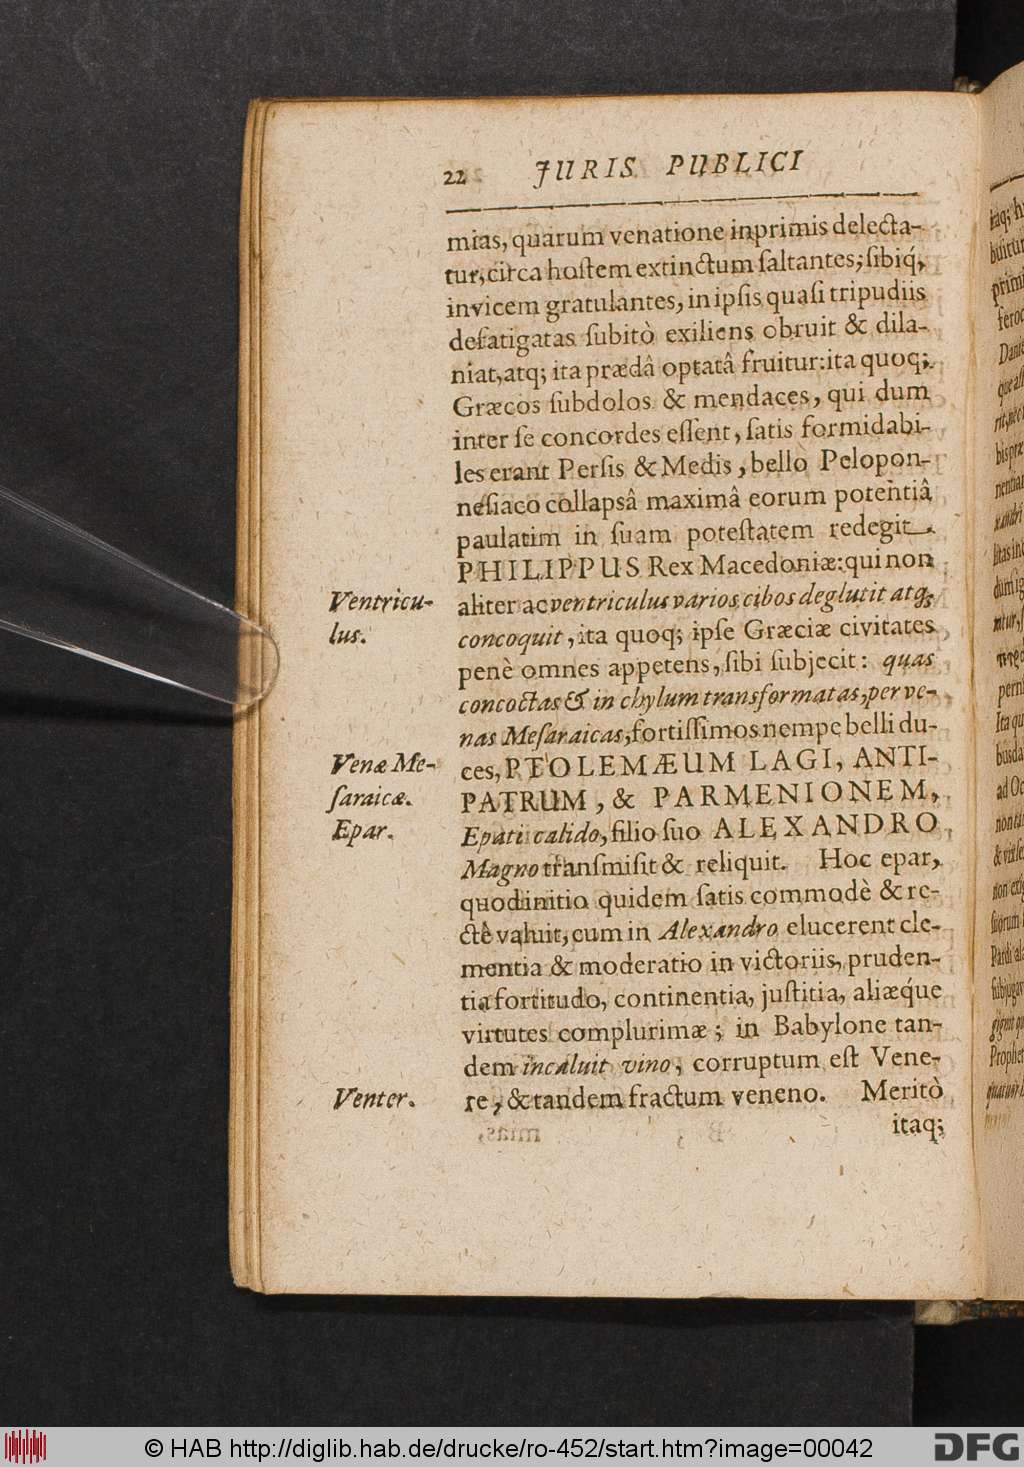 22 JURIS PUBLICI
mias, quarum venatione inprimis delecta-
tur, circa hostem extinctum saltantes, sibiq́;
invicem gratulantes, in ipsis quasi tripudiis
defatigatas subitò exiliens obruit & dila-
niat, atq; ita prædâ optatâ fruitur: ita quoq;
Græcos subdolos & mendaces, qui dum
inter se concordes essent, satis formidabi-
les erant Persis & Medis, bello Pelopon-
nesiaco collapsâ maximâ eorum potentiâ
paulatim in suam potestatem redegit
PHILIPPUS Rex Macedoniæ: qui non
Ventricu-
lus.
aliter ac ventriculus varios cibos deglutit atq;
concoquit, ita quoq; ipse Græciæ civitates
penè omnes appetens, sibi subjecit: quas
concoctas & in chylum transformatas, per ve-
nas Mesaraicas, fortissimos nempe belli du-
Venæ Me-
saraicæ.
Epar.
ces, PTOLEMÆUM LAGI, ANTI-
PATRUM, & PARMENIONEM,
Epati calido, filio suo ALEXANDRO
Magno transmisit & reliquit. Hoc epar,
quod initio quidem satis commodè & re-
ctè valuit, cum in Alexandro elucerent cle-
mentia & moderatio in victoriis, pruden-
tia fortitudo, continentia, justitia, aliæq́ue
virtutes complurimæ; in Babylone tan-
dem incaluit vino, corruptum est Vene-
Venter.
re, & tandem fractum veneno. Meritò
itaq;
© HAB http://diglib.hab.de/drucke/ro-452/start.htm?image=00042
DFG